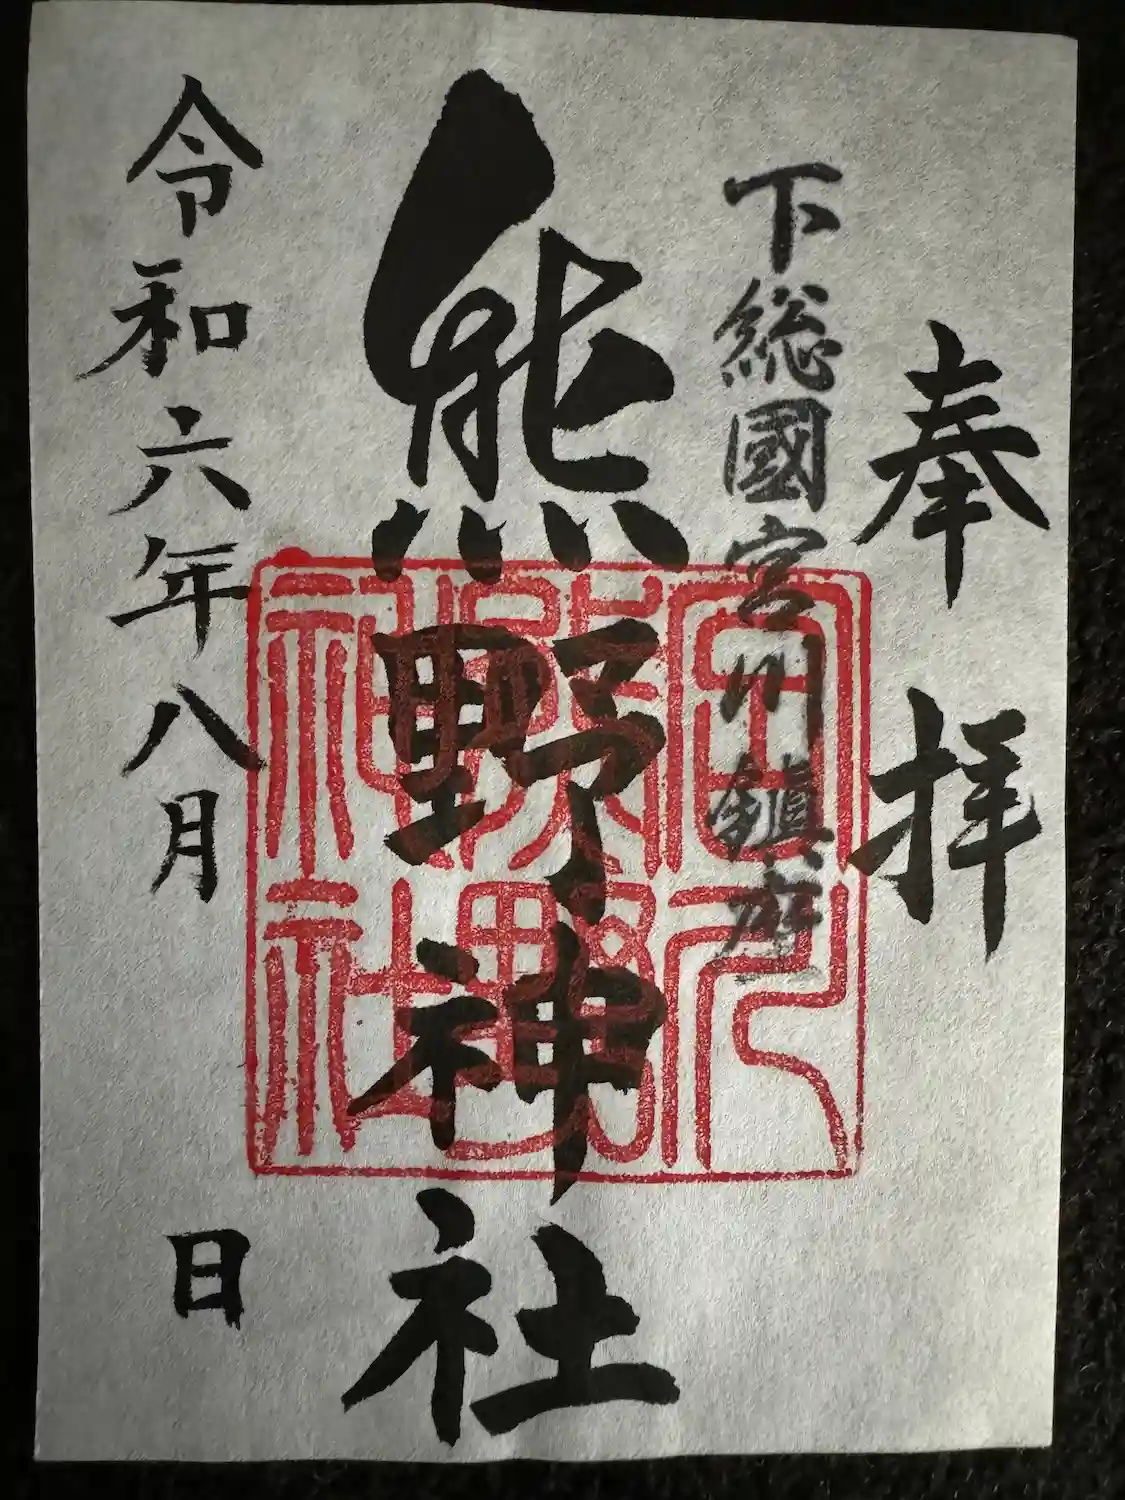 奉拝
下総國宮川鎮座
熊野神社
令和六年八月 日
宮川
熊野
神社